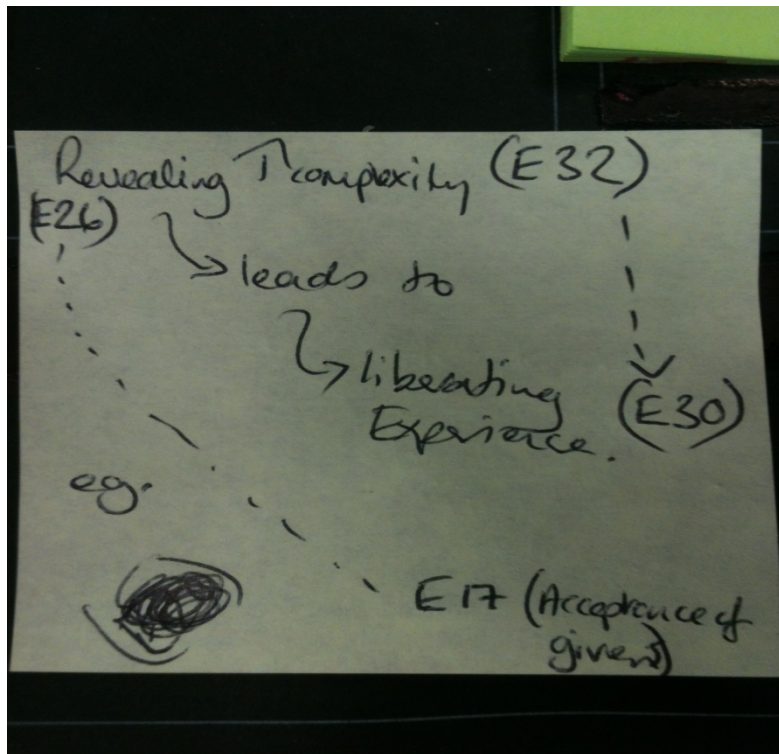 Revealing ↑complexity (E32)
(E26)
leads to
liberating
Experience.
(E30)
eg.
E17 (Acceptance of
givens)